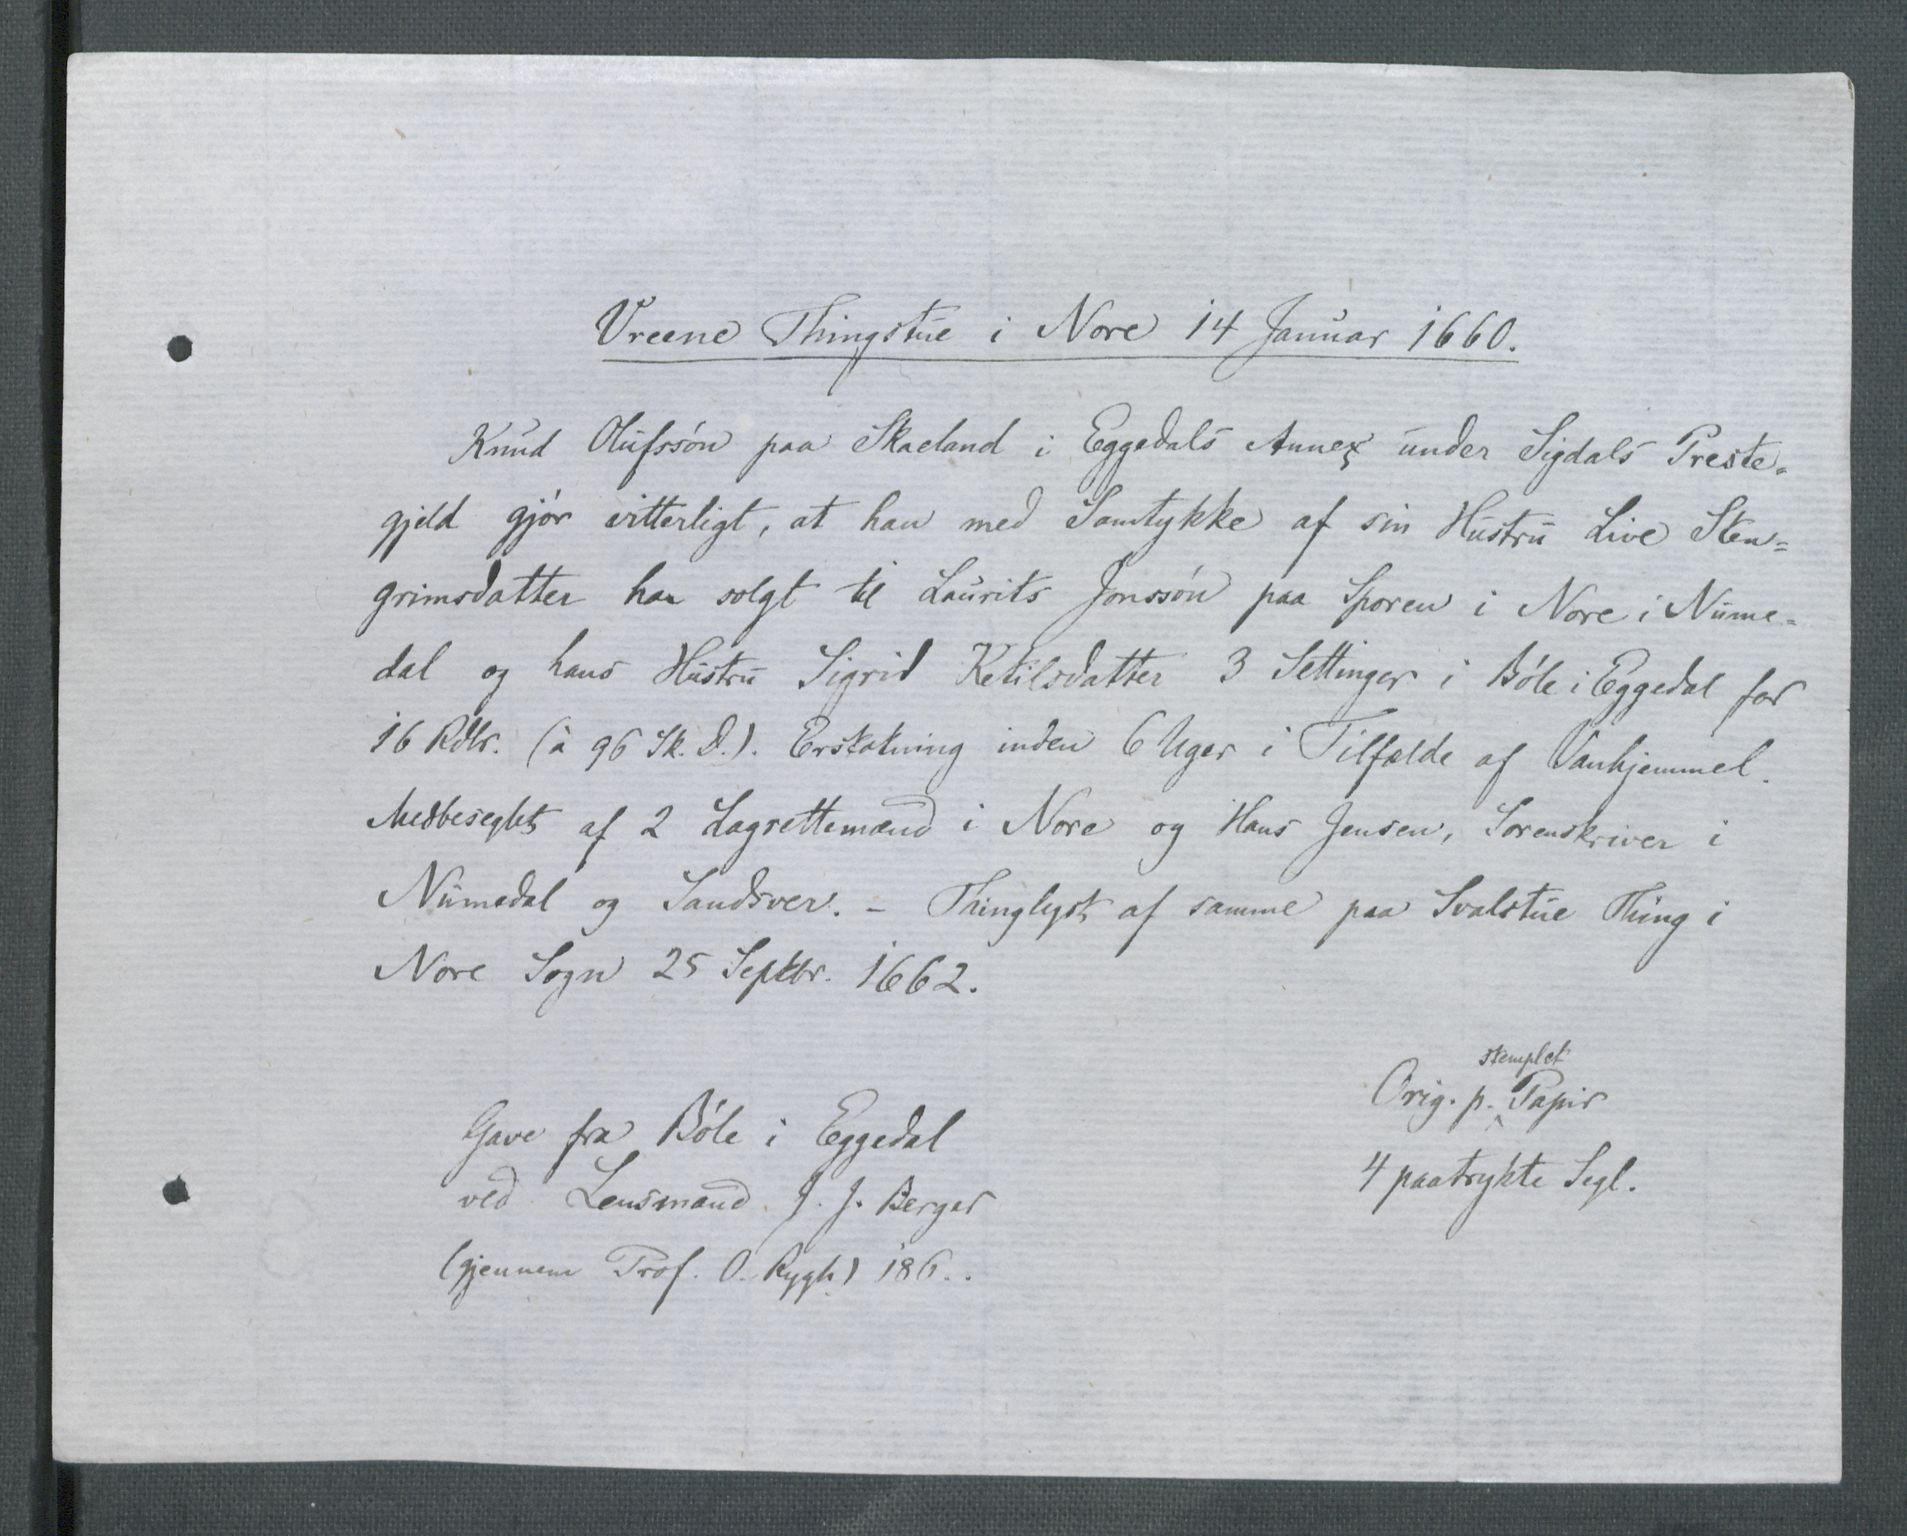 Vreene Thingstue i Nore 14 Januar 1660.
Knud Olufssøn paa Skaeland i Eggedals Annex under Sigdals Preste-
gjeld gjør vitterligt, at han med Samtykke af sin Hustru Live Sten-
grimsdatter har solgt til Laurits Jonssøn paa Sporen i Nore i Nume-
dal og hans Hustru Sigrid Ketilsdatter 3 Settinger i Bøle i Eggedal for
16 Rdlr. (à 96 Sk. D.). Erstatning inden 6 Uger i Tilfælde af Vanhjemmel.
Medbeseglet af 2 Lagrettemænd i Nore og Hans Jensen, Sorenskriver i
Numedal og Sandsver. – Thinglyst af samme paa Svalstue Thing i
Nore Sogn 25 Septbr. 1662.
Orig. p. stemplet Papir
4 paatrykte Segl.
Gave fra Bøle i Eggedal
ved Lensmand J. J. Berger
(gjennem Prof. O. Rygh) 186..